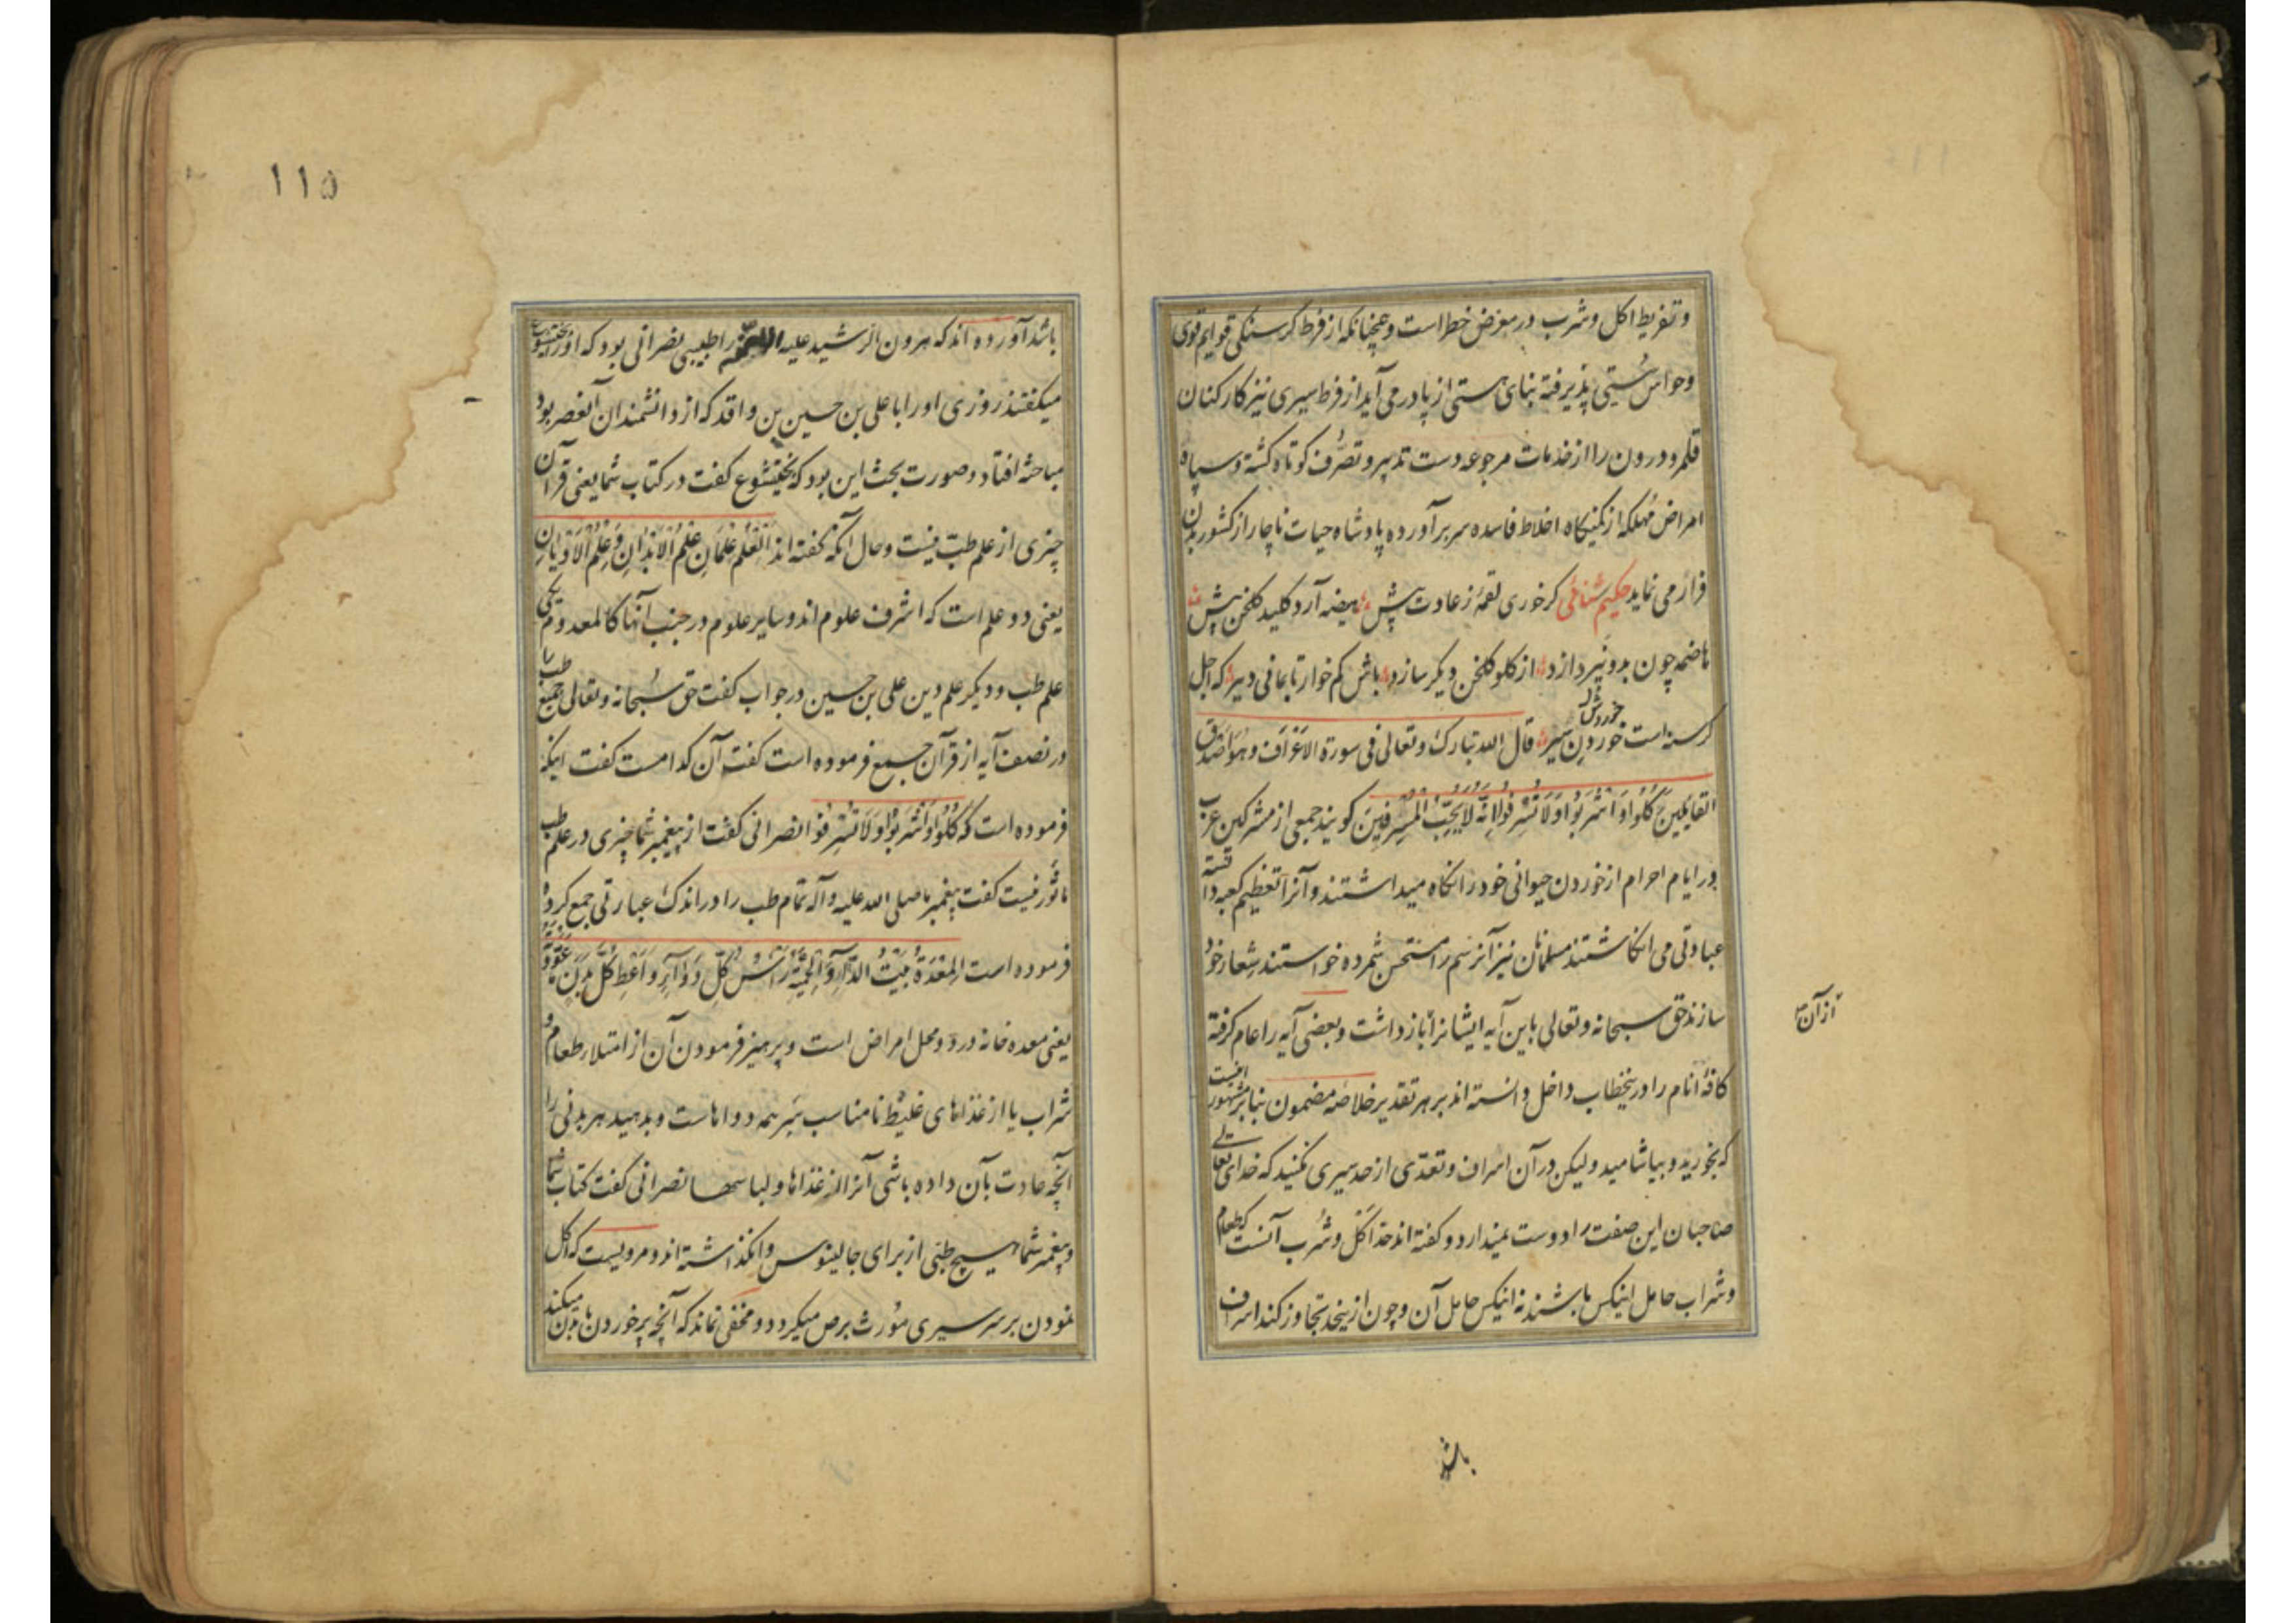 و تفریط اکل و شرب در معرض خطراست و همچنانکه از فرط کرسنکی قوایم قوی
و حواس سُستی پذیرفته بنای هستی از پا در می آید از فرط سیری نیز کارکنان
قلمرو درون را از خدمات مرجوعه دست تدبیر و تصرُّف کوتاه کشته و سپاه
امراض مُهلکه از کمینکاه اخلاط فاسده سر بر آورده پادشاه حیات ناچار از کشور بدن
فرار می نماید حکیم سنائی کر خوری لقمهٔ ز عادت پیش هیضه آرد کلید کلخن پیش
هاضمه چون بدو نپردازد از کلو کلخن دیکر سازد باش کم خوار تا بمانی دیر که اجل
کرسنه است خوردن سیر قال الله تبارک و تعالی فی سورة الاعراف و هُوَ اَصدق
خورش
القایلین کُلُوا وَ اشْرَبُوا وَ لَا تُسْرِفُوا اِنَّهُ لَا یُحِبُّ الْمُسْرِفِینَ کویند جمعی از مشرکین عرب
در ایام احرام از خوردن حیوانی خود را نکاه میداشتند و آنرا تعظیم کعبه دانسته
عبادتی می انکاشتند مسلمانان نیز آنرسم را مستحسن شمرده خواستند شِعار خود
سازند حق سبحانه و تعالی باین آیه ایشانرا باز داشت و بعضی آیه را عام کرفته
از آن
کافهٔ انام را در ینخطاب داخل دانسته اند بر هر تقدیر خلاصهٔ مضمون بنا بر مشهور اینست
که بخورید و بیاشامید و لیکن در آن اسراف و تعدّی از حد سیری نکنید که خدای تعالی
صاحبان این صفت را دوست نمیدارد و کفته اند حدّ اَکْل و شُرب آنست که طعام
و شراب حامل اینکس باشند نه اینکس حامل آن و چون از ینحد تجاوز کند اسراف
باشد
۱۱۵
باشد آورده اند که هرون الرشید علیه را طبیبی نصرانی بود که او را بختیشوع
میکفتند روزی او را با علی بن حسین بن واقد که از دانشمندان آنعصر بود
مباحثه افتاد و صورت بحث این بود که بختیشوع کفت در کتاب شما یعنی قرآن
چیزی از علم طبّ نیست و حال آنکه کفته اند اَلْعِلْمُ عِلْمَانِ عِلْمُ الْاَبْدَانِ وَ عِلْمُ الْاَدْیَانِ
یعنی دو علم است که اشرف علوم اند و سایر علوم در جنب آنها کالمعدوم یکی
علم طب و دیکر علم دین علی بن حسین در جواب کفت حق سُبحانه و تعالی جمیع طب را
در نصف آیه از قرآن جمع فرموده است کفت آن کدامست کفت اینکه
فرموده است که کُلُوا وَ اشْرَبُوا وَ لَا تُسْرِفُوا نصرانی کفت از پیغمبر شما چیزی در علم طب
ماثُور نیست کفت پیغمبر ما صلی الله علیه و آله تمام طب را در اندک عبارتی جمع کرده
فرموده است اَلْمِعْدَةُ بَیْتُ الدَّاءِ وَ الْحِمْیَةُ رَأْسُ کُلِّ دَوَاءٍ وَ اَعْطِ کُلَّ بَدَنٍ مَا عَوَّدْتَهُ
یعنی معده خانه درد و محل امراض است و پرهیز فرمودن آن از امتلاء طعام و
شراب یا از غذاهای غلیظ نامناسب سَرِ همه دواهاست و بدهید هر بدنی را
آنچه عادت بآن داده باشی آنرا از غذاها و لباسها نصرانی کفت کتاب شما
و پیغمبر شما هیچ طبّی از برای جالینوس وا نکذاشته اند و مرویست که اکل
نمودن بر سر سیری مُورث برص میکردد و مخفی نماند که آنچه پر خوردن با بدن میکند